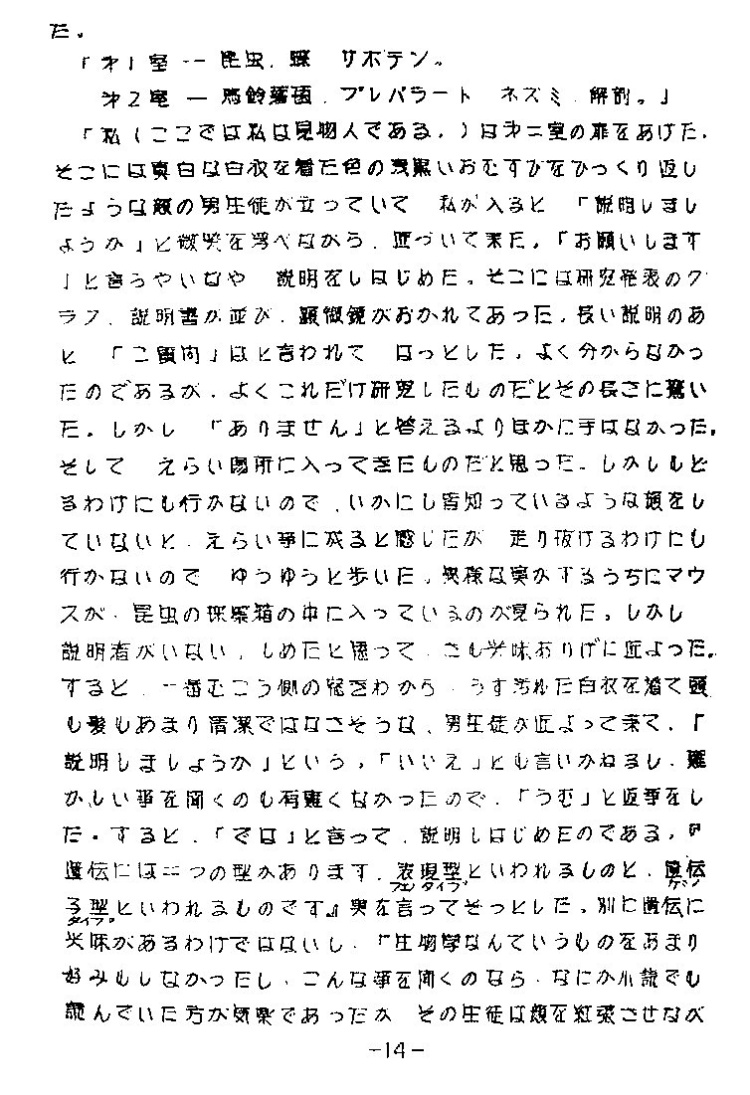 た。
「オ1室 -- 昆虫.蝶 サボテン。
オ2室 — 馬鈴薯 .プレパラート ネズミ.解剖。」
「私(ここでは私は見物人である.)はオ二室の扉をあけた.
そこには真白な白衣を着た色の浅黒いおむすびをひっくり返し
たような顔の男生徒が立っていて 私が入ると 「説明しまし
ょうか」と微笑を浮べながら.近づいて来た.「お願いします
」と言うやいなや 説明をしはじめた.そこには研究発表のグ
ラフ.説明書が並び.顕微鏡がおかれてあった.長い説明のあ
と 「ご質問」はと言われて はっとした.よく分からなかっ
たのであるが.よくこれだけ研究したものだとその長さに驚い
た.しかし 「ありません」と答えるよりほかに手はなかった.
そして えらい場所に入ってきたものだと思った.しかしもど
るわけにも行かないので .いかにし皆知っているような顔をし
ていないと.えらい事に成ると感じたが 走り抜けるわけにも
行かないので ゆうゆうと歩いた.異様な臭がするうちにマウ
スが.昆虫の採集箱の中に入っているのが見られた.しかし
説明者がいない.しめたと思って.さも興味ありげに近よった.
すると.一番むこう側の窓ぎわから.うす汚れた白衣を着て頭
も髪もあまり清潔ではなさそうな.男生徒が近よって来て.「
説明しましょうか」という.「いいえ」とも言いかねるし.難
かしい事を聞くのも有難くなかったので.「うむ」と返事をし
た.すると.「では」と言って.説明しはじめたのである.『
遺伝には二つの型があります.表現型といわれるものと.遺伝
フェノタイプ ゲノ
子型といわれるものです』異を言ってぞっとした.別に遺伝に
タイプ
興味があるわけではないし.「生物学なんていうものをあまり
好みもしなかったし.こんな事を聞くのなら.なにか小説でも
読んでいた方が気楽であったが その生徒は顔を紅張させなが
-14-